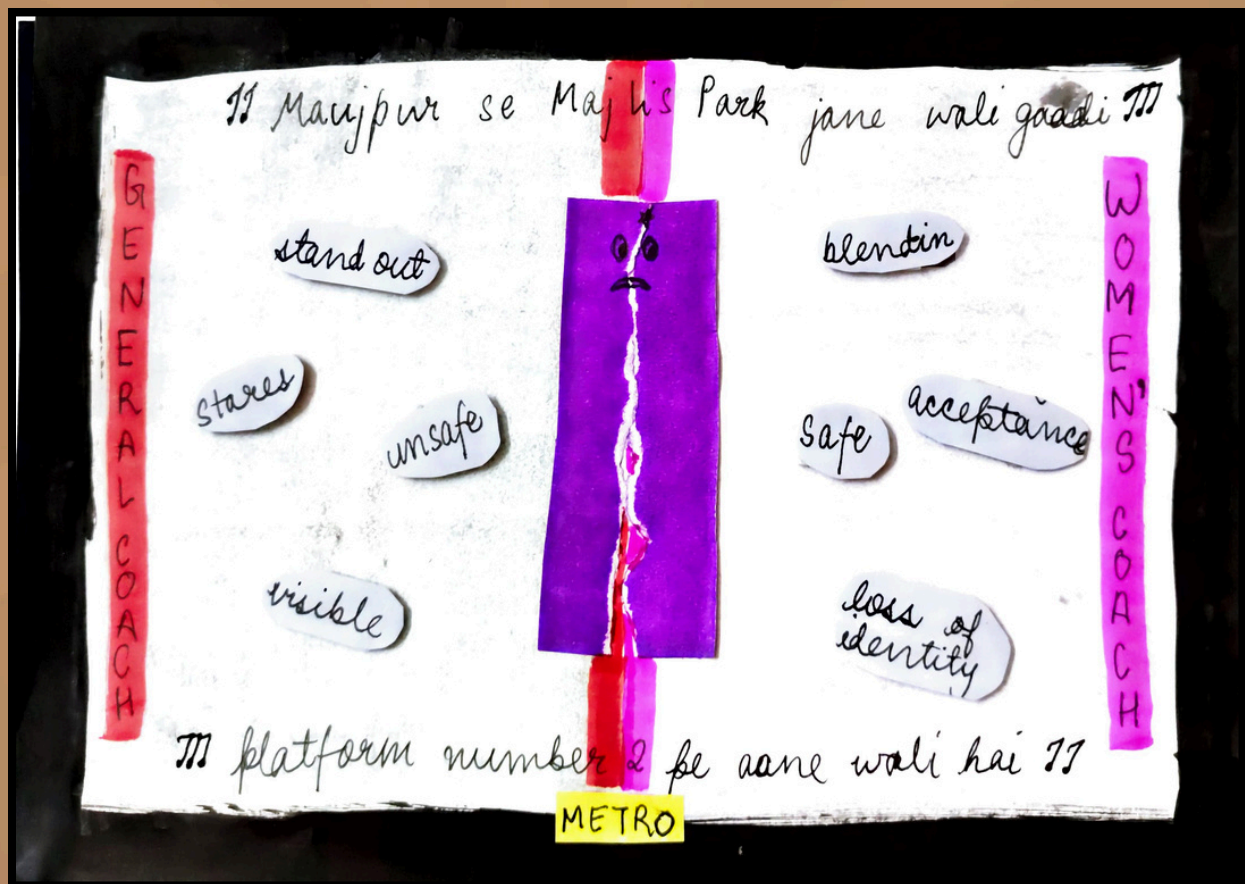 ♫ Maujpur se Majlis Park jane wali gaadi ♫
GENERAL COACH
stand out
stares
unsafe
visible
blend in
safe
acceptance
loss of identity
WOMEN'S COACH
♫ platform number 2 pe aane wali hai ♫
METRO